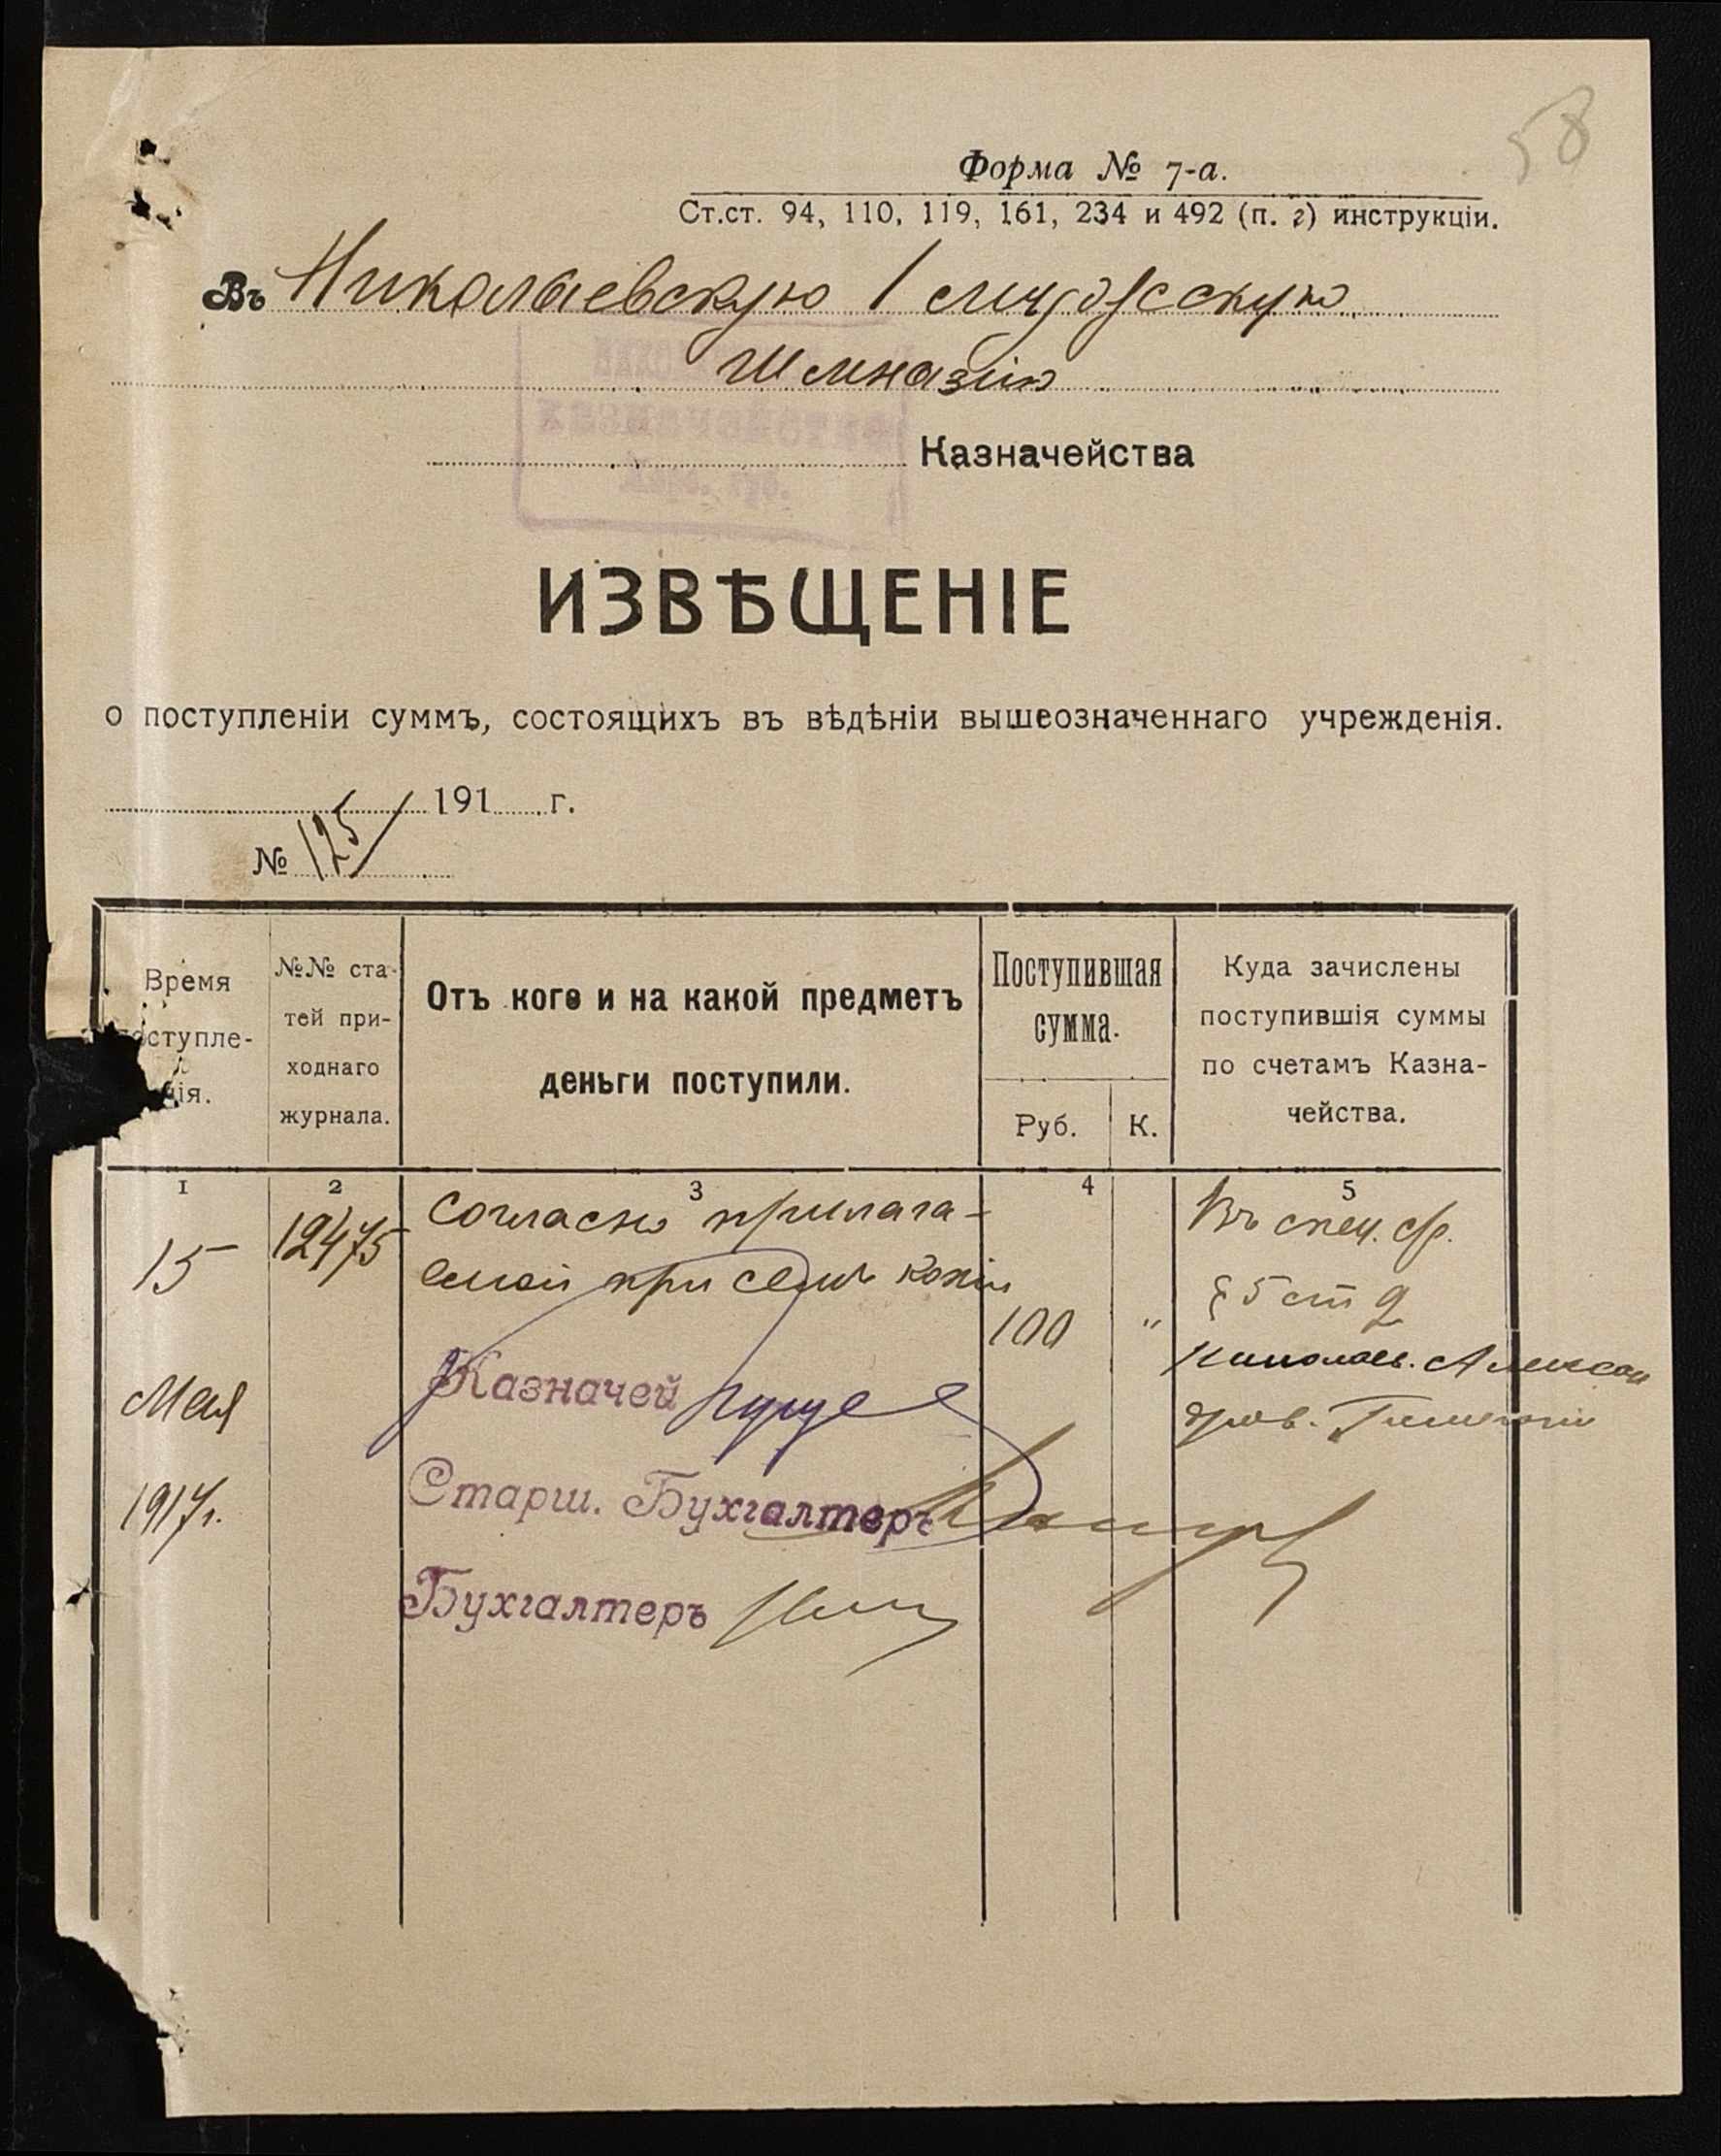 58
Форма № 7-а.
Ст.ст. 94, 110, 119, 161, 234 и 492 (п. г) инструкціи.
Въ Николаевскую 1 мужскую
Гимназію
Казначейства
Казначейства
Херс. губ.
ИЗВѢЩЕНІЕ
о поступленіи суммъ, состоящихъ въ вѣдѣніи вышеозначеннаго учрежденія.
191 г.
№ 125
Время
поступле-
нія.
№№ ста-
тей при-
ходнаго
журнала.
Отъ кого и на какой предметъ
деньги поступили.
Поступившая
сумма.
Руб. К.
Куда зачислены
поступившія суммы
по счетамъ Казна-
чейства.
1 2 3 4 5
15
Мая
1917 г.
12475
Согласно прилага-
емой при семъ копіи
100 "
Въ спец. ср.
§ 5 ст 2
Николаев. Алексан
дров. Гимназіи
Казначей
Старш. Бухгалтеръ
Бухгалтеръ